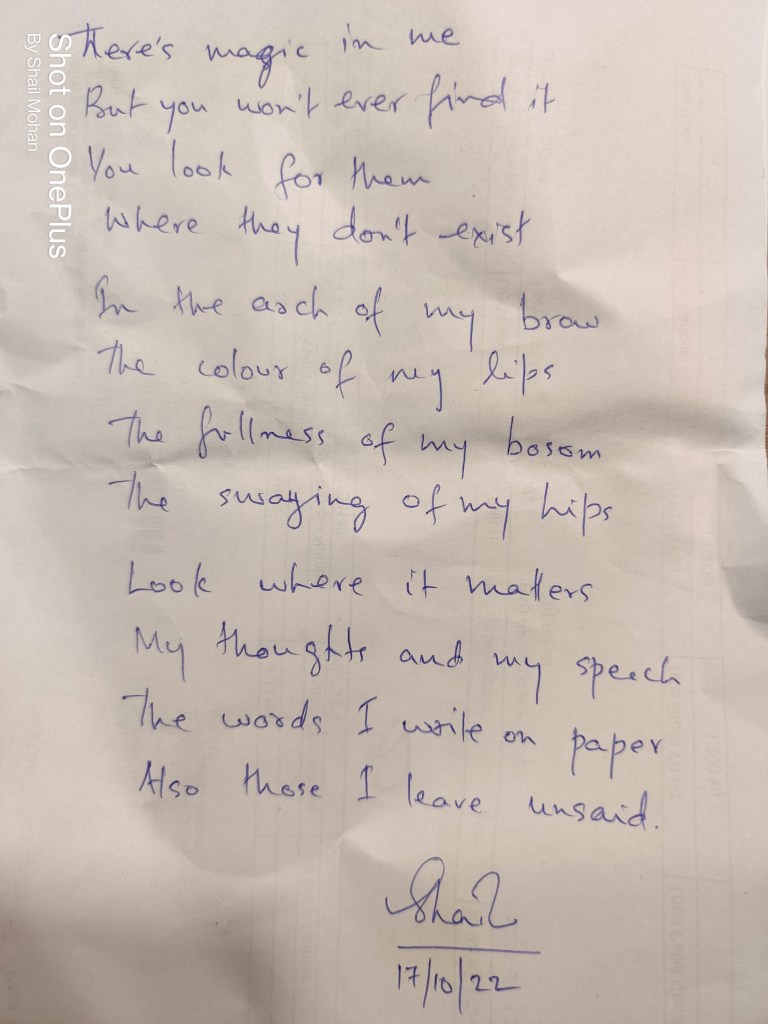 There's magic in me
But you won't ever find it
You look for them
Where they don't exist
In the arch of my brow
The colour of my lips
The fullness of my bosom
The swaying of my hips
Look where it matters
My thoughts and my speech
The words I write on paper
Also those I leave unsaid.
Shail
17/10/22
Shot on OnePlus
By Shail Mohan